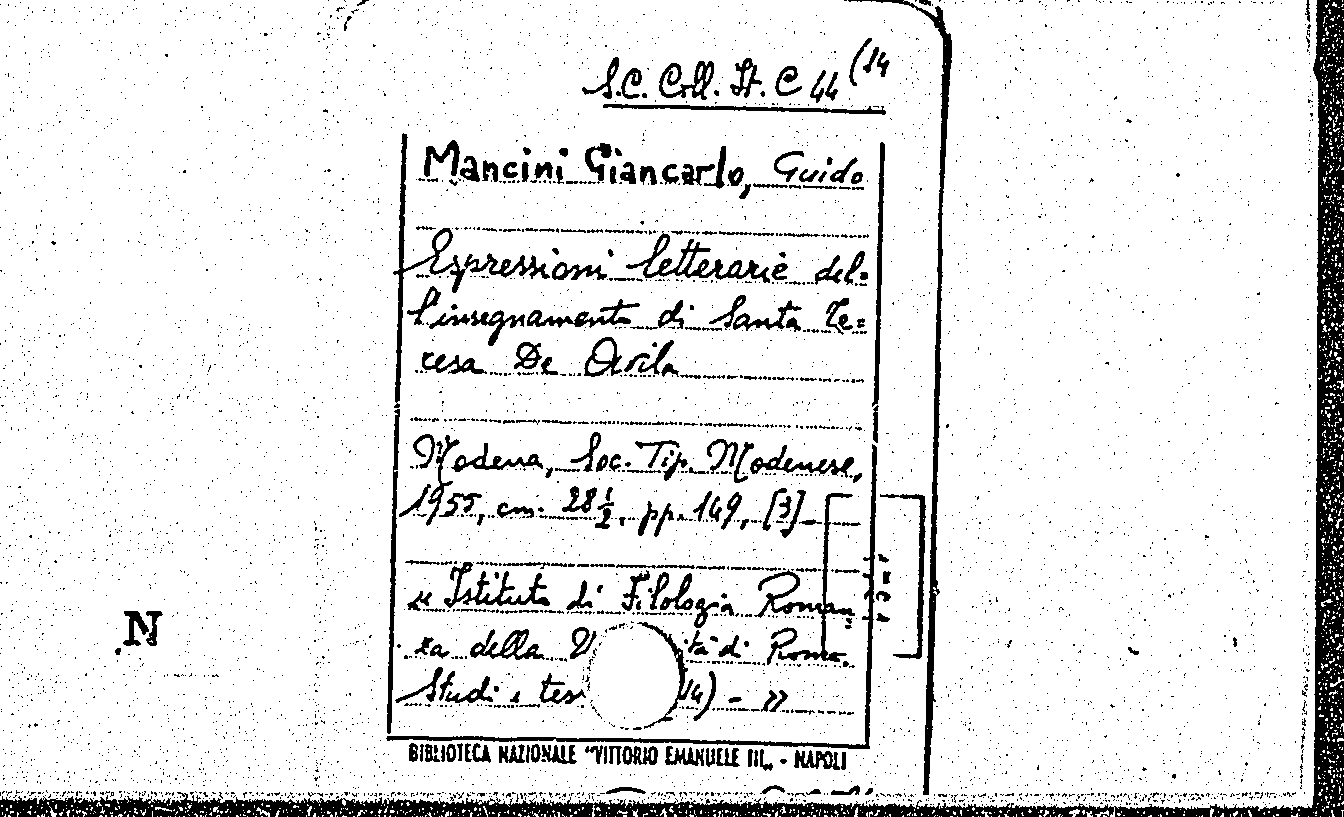 S.C. Coll. It. C 44 (14
Mancini Giancarlo, Guido
Espressioni letterarie del=
l'insegnamento di Santa Te=
resa De Avila
Modena, Soc. Tip. Modenese,
1955, cm. 28 1/2, pp. 149, [3] -
« Istituto di Filologia Roman
za della U ità di Roma.
Studi e tes 14) - »
N
BIBLIOTECA NAZIONALE "VITTORIO EMANUELE III„ - NAPOLI